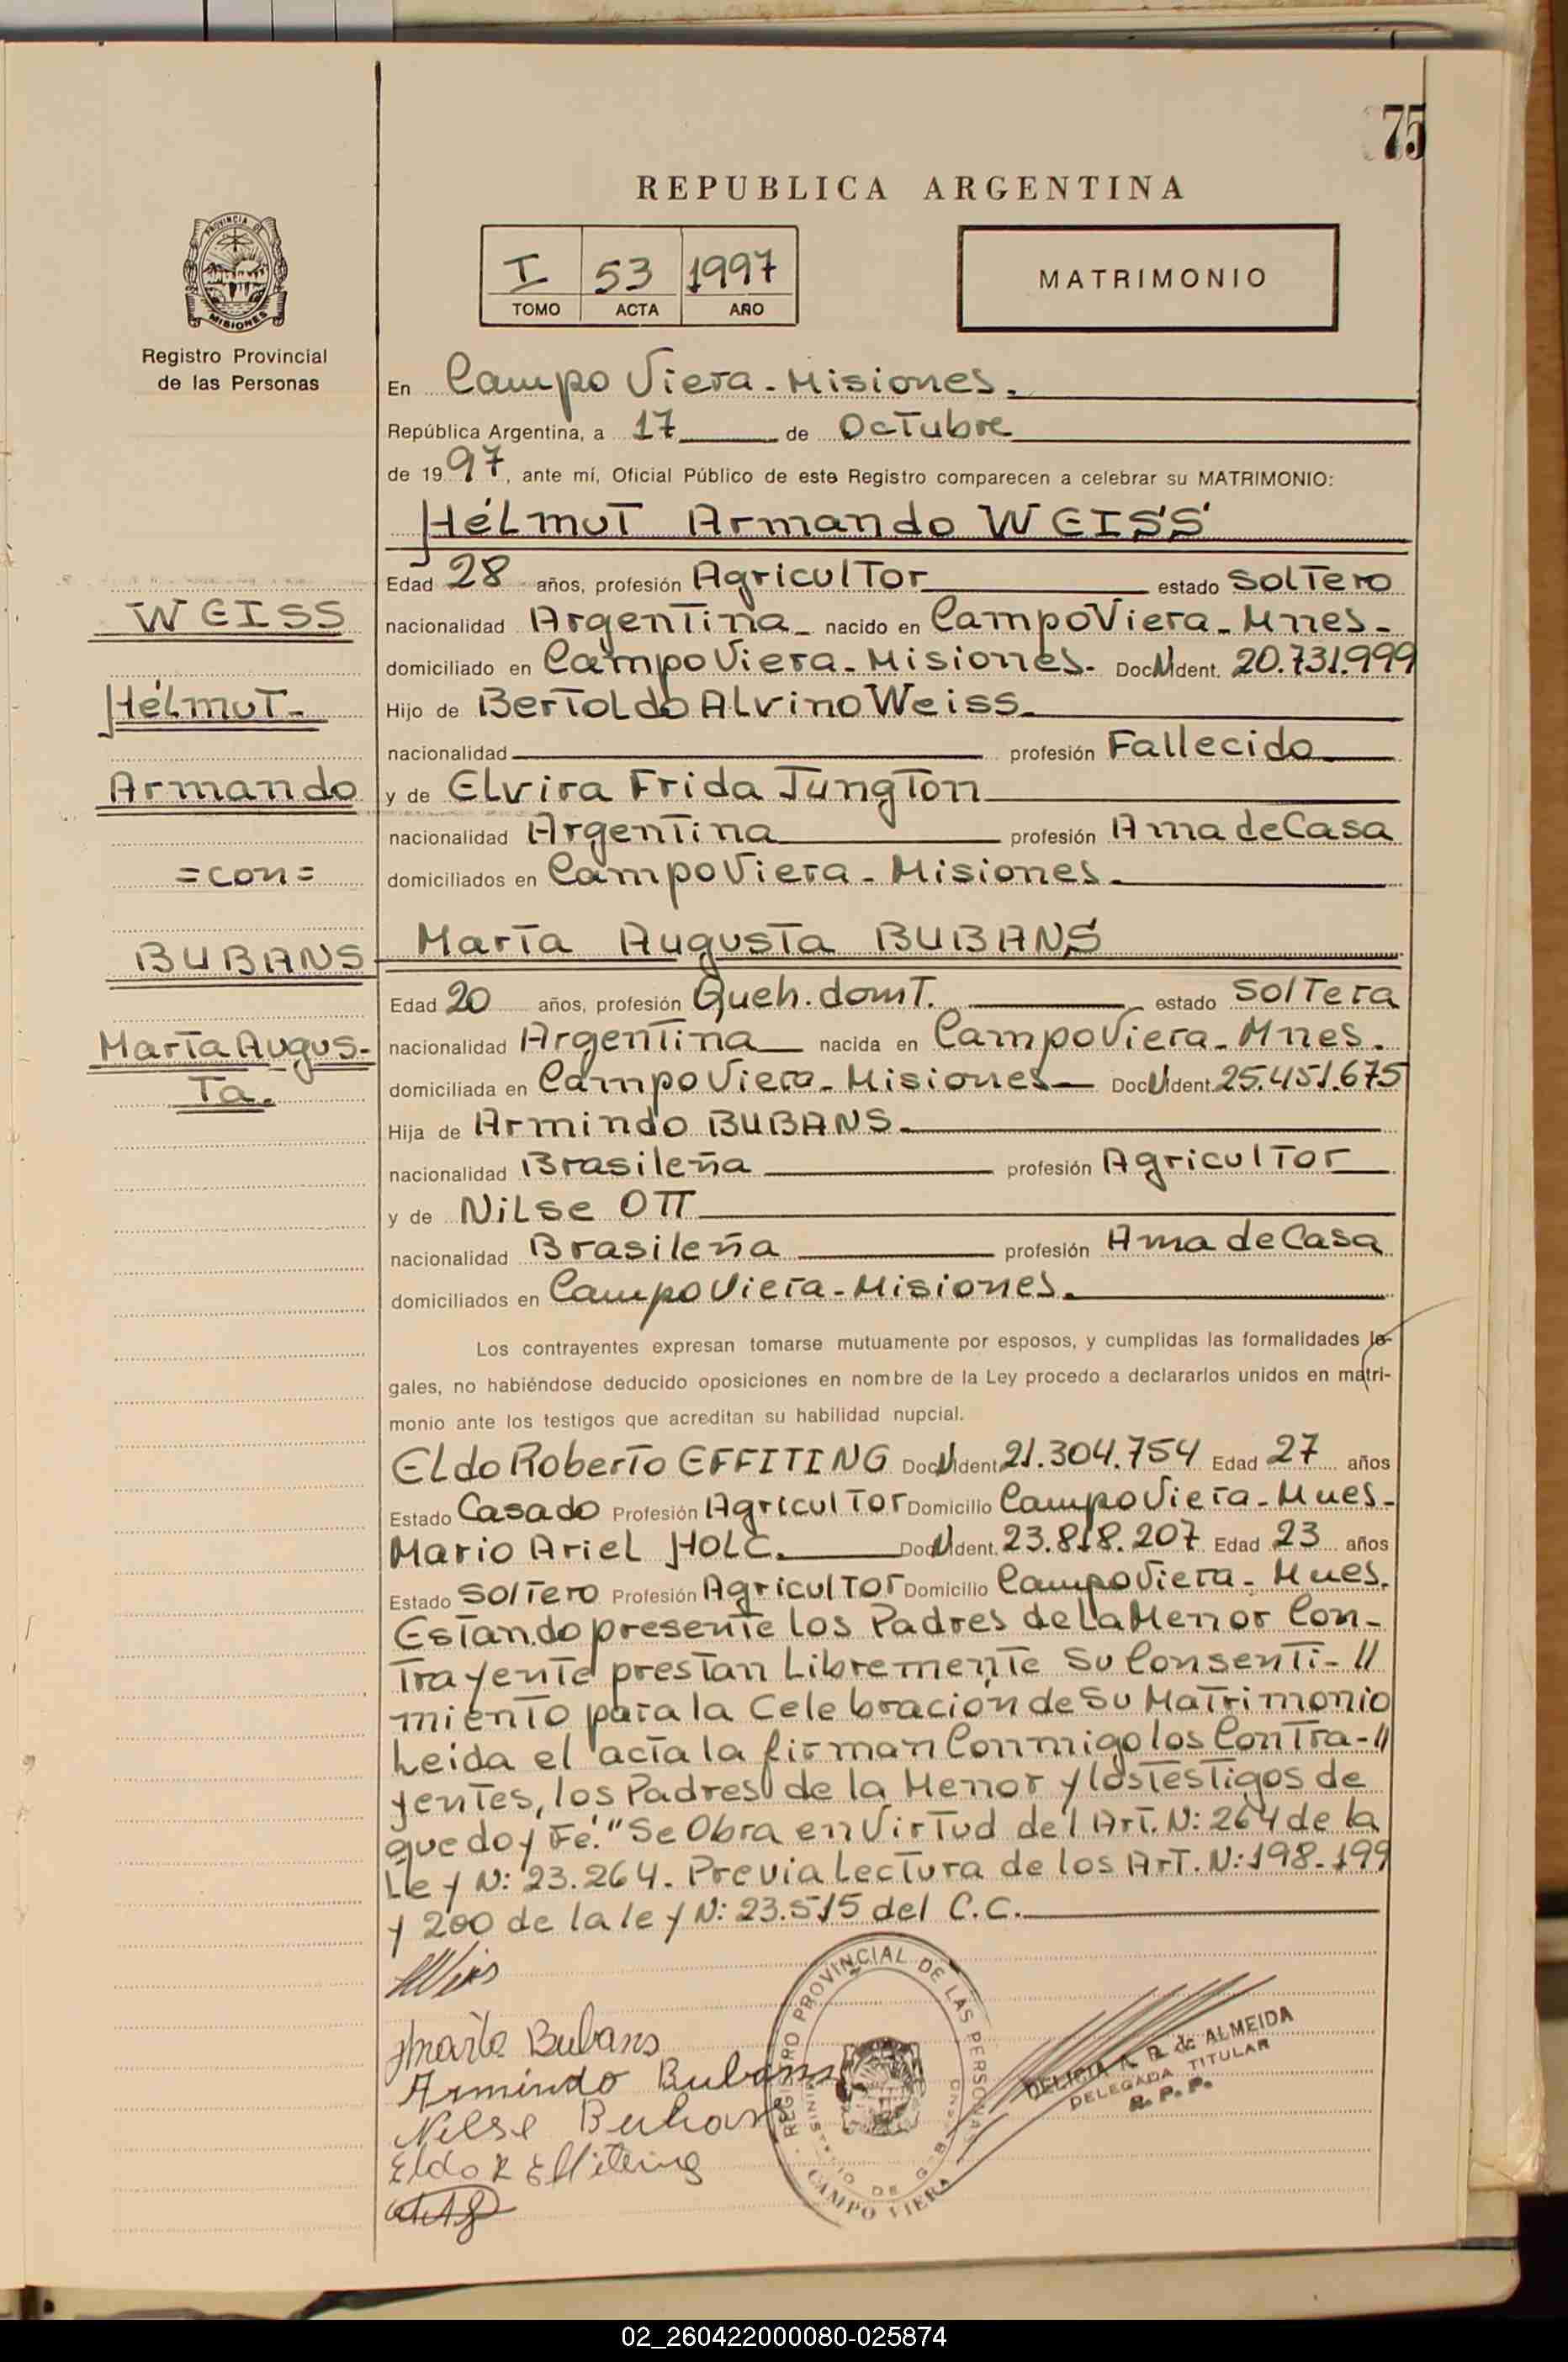 75
REPUBLICA ARGENTINA
PROVINCIA DE
MISIONES
Registro Provincial
de las Personas
I 53 1997
TOMO ACTA AÑO
MATRIMONIO
En Campo Viera - Misiones.
República Argentina, a 17 de Octubre
de 1997, ante mí, Oficial Público de este Registro comparecen a celebrar su MATRIMONIO:
Hélmut Armando WEISS
Edad 28 años, profesión Agricultor estado Soltero
nacionalidad Argentina - nacido en Campo Viera - Mnes -
domiciliado en Campo Viera - Misiones - Doc N Ident. 20.731.999
Hijo de Bertoldo Alvino Weiss.
nacionalidad profesión Fallecido
y de Elvira Frida Jungton
nacionalidad Argentina profesión Ama de Casa
domiciliados en Campo Viera - Misiones.
WEISS
Hélmut -
Armando
= con =
BUBANS
Marta Augus-
ta.
Marta Augusta BUBANS
Edad 20 años, profesión Queh. domt. estado Soltera
nacionalidad Argentina nacida en Campo Viera - Mnes.
domiciliada en Campo Viera - Misiones Doc N Ident. 25.451.675
Hija de Armindo BUBANS.
nacionalidad Brasileña profesión Agricultor
y de Nilse OTT
nacionalidad Brasileña profesión Ama de Casa
domiciliados en Campo Viera - Misiones.
Los contrayentes expresan tomarse mutuamente por esposos, y cumplidas las formalidades le-
gales, no habiéndose deducido oposiciones en nombre de la Ley procedo a declararlos unidos en matri-
monio ante los testigos que acreditan su habilidad nupcial.
Eldo Roberto EFFITING Doc N Ident. 21.304.754 Edad 27 años
Estado Casado Profesión Agricultor Domicilio Campo Viera - Mnes -
Mario Ariel HOLC. Doc N Ident. 23.818.207 Edad 23 años
Estado Soltero Profesión Agricultor Domicilio Campo Viera - Mnes.
Estando presente los Padres de la Menor Con-
trayente prestan Libremente Su Consenti- //
miento para la Celebración de Su Matrimonio
Leida el acta la firman Conmigo los Contra- //
yentes, los Padres de la Menor y los testigos de
que doy Fé. "Se Obra en Virtud del Art. N: 264 de la
Ley N: 23.264. Previa Lectura de los Art. N: 198-199
y 200 de la ley N: 23.515 del C.C.
Marta Bubans
Armindo Bubans
Nilse Bubans
Eldo R Effiting
REGISTRO PROVINCIAL DE LAS PERSONAS
CAMPO VIERA
DELICIA A. R. de ALMEIDA
DELEGADA TITULAR
R. P. P.
02_260422000080-025874